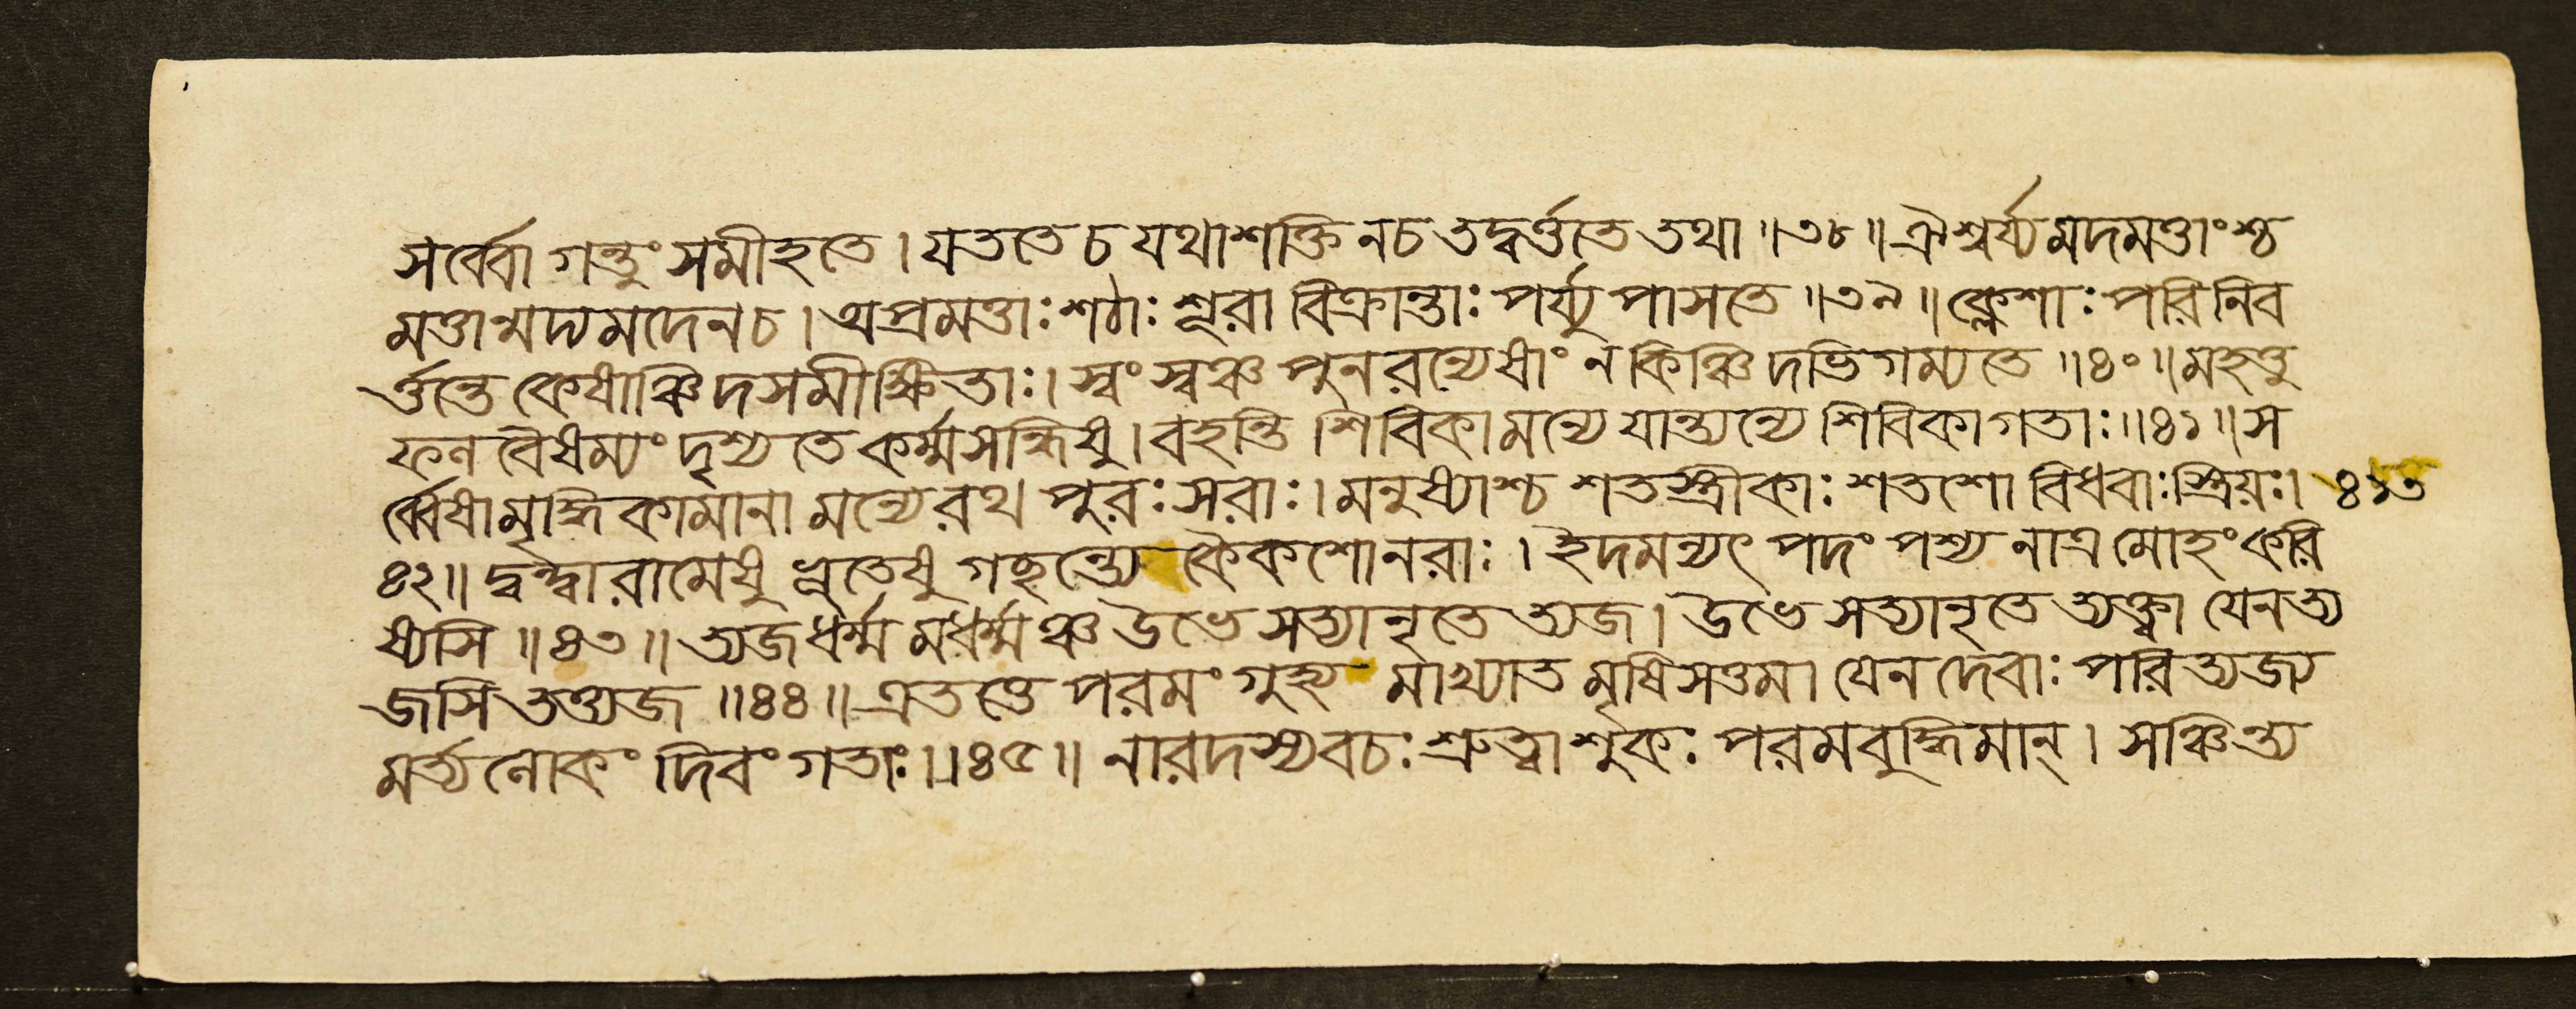 সর্ব্বো গন্তুং সমীহতে। যততে চ যথাশক্তি নচ তদ্বর্ত্ততে তথা॥৩৮॥ ঐশ্বর্য্যমদমত্তাংশ্চ
মত্তান্মদ্যমদেনচ। অপ্রমত্তাঃ শঠাঃ শূরা বিক্রান্তাঃ পর্য্যুপাসতে॥৩৯॥ ক্লেশাঃ পরিনিব
র্ত্তন্তে কেষাঞ্চিদসমীক্ষিতাঃ। স্বং স্বঞ্চ পুনরন্যেষাং ন কিঞ্চিদভিগম্যতে॥৪০॥ মহত্তু
ফল বৈষম্যং দৃশ্যতে কর্ম্মসন্ধিষু। বহন্তি শিবিকামন্যে যান্ত্যন্যে শিবিকাগতাঃ॥৪১॥ স
র্ব্বেষামৃদ্ধিকামানা মন্যে রথ পুরঃসরাঃ। মনুষ্যাশ্চ শতস্ত্রীকাঃ শতশো বিধবাঃ স্ত্রিয়ঃ। ৪১৩
৪২॥ দ্বন্দ্বারামেষু ভূতেষু গচ্ছন্ত্যে কৈকশোনরাঃ। ইদমন্যৎ পদং পশ্য নাত্র মোহং করি
ষ্যসি॥৪৩॥ ত্যজ ধর্ম্ম মধর্ম্মঞ্চ উভে সত্যানৃতে ত্যজ। উভে সত্যানৃতে ত্যক্ত্বা যেন ত্য
জসি তত্ত্যজ॥৪৪॥ এতত্তে পরমং গুহ্য মাখ্যাত মৃষিসত্তম। যেন দেবাঃ পরিত্যজ্য
মর্ত্যলোকং দিবং গতাঃ॥৪৫॥ নারদস্য বচঃ শ্রুত্বা শুকঃ পরমবুদ্ধিমান্। সঞ্চিন্ত্য